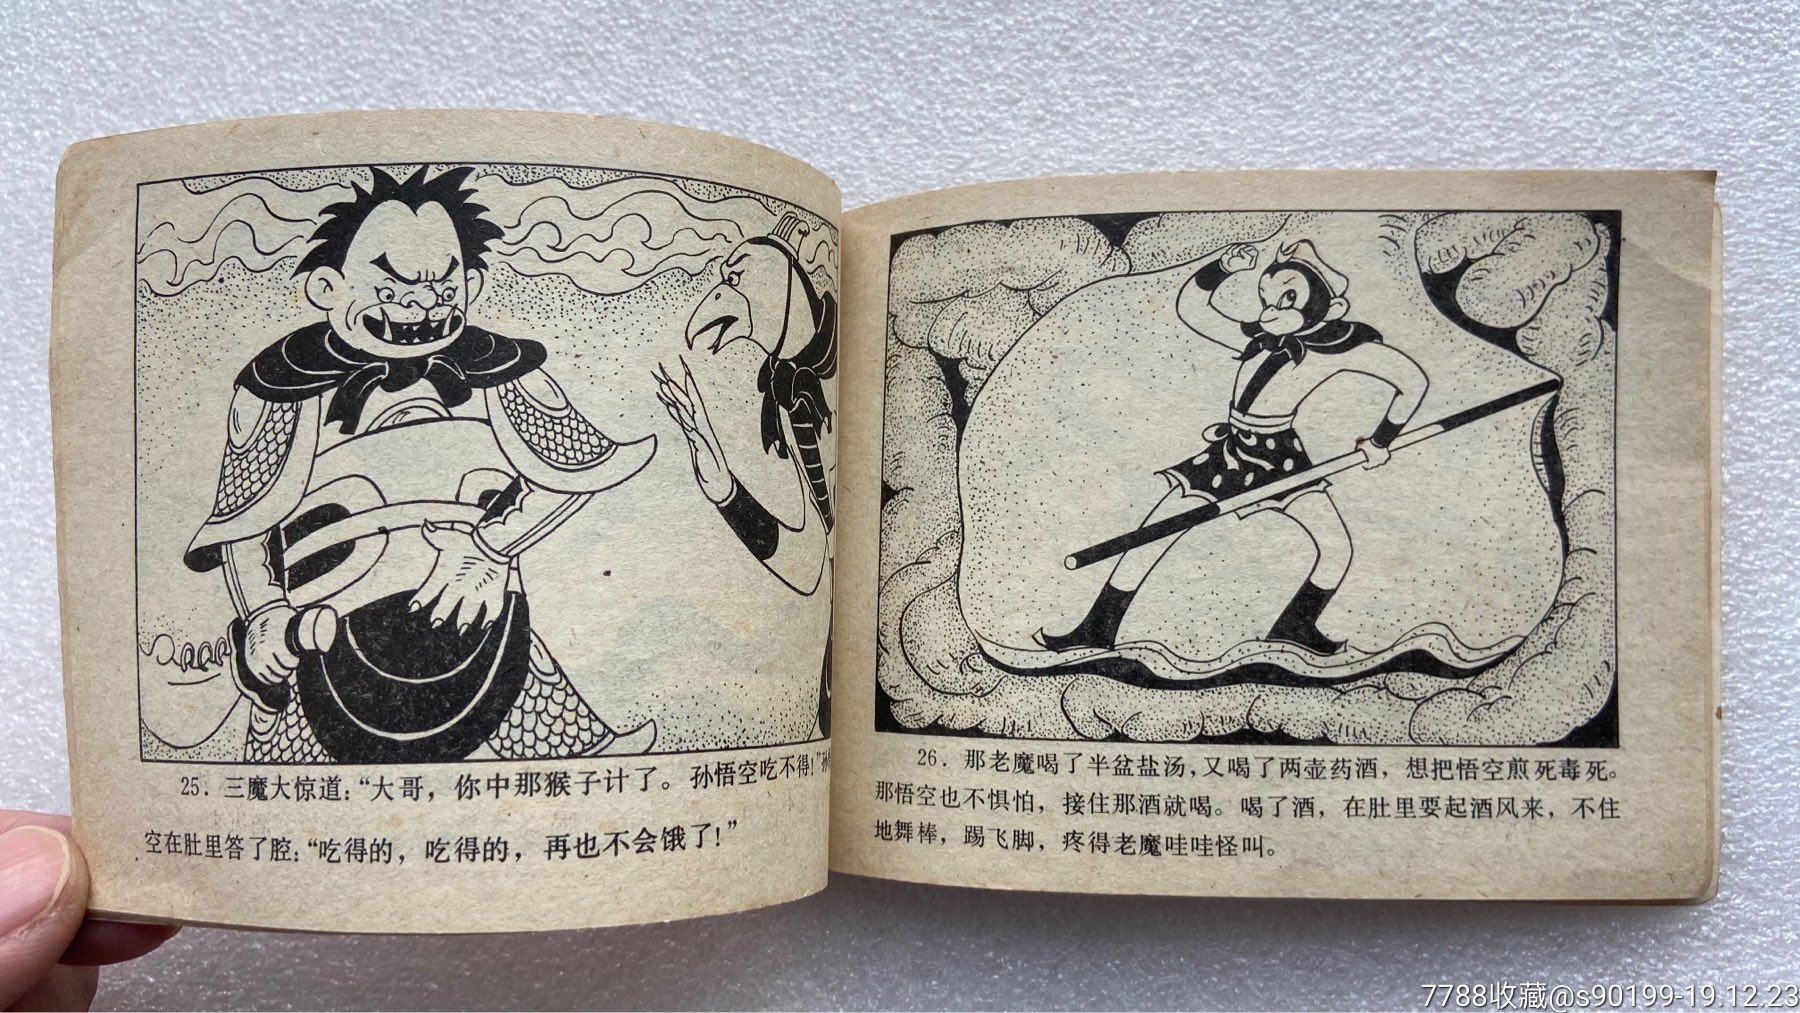 25．三魔大惊道：“大哥，你中那猴子计了。孙悟空吃不得！”
空在肚里答了腔：“吃得的，吃得的，再也不会饿了！”
26．那老魔喝了半盆盐汤，又喝了两壶药酒，想把悟空煎死毒死。
那悟空也不惧怕，接住那酒就喝。喝了酒，在肚里要起酒风来，不住
地舞棒，踢飞脚，疼得老魔哇哇怪叫。
7788收藏@s90199-19.12.23